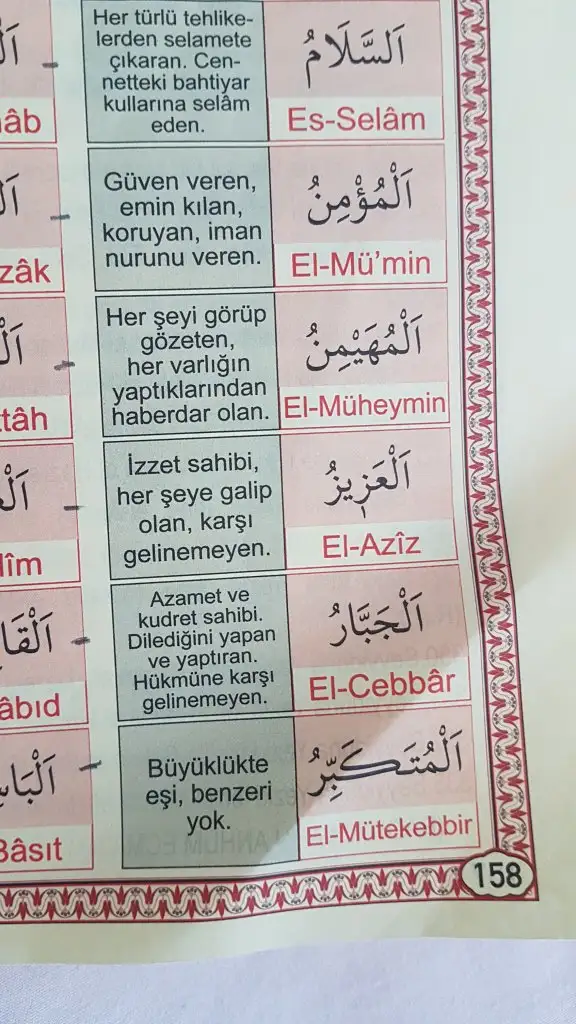 Her türlü tehlike-
lerden selamete
çıkaran. Cen-
netteki bahtiyar
kullarına selâm
eden.
اَلسَّلَامُ
Es-Selâm
Güven veren,
emin kılan,
koruyan, iman
nurunu veren.
اَلْمُؤْمِنُ
El-Mü’min
Her şeyi görüp
gözeten,
her varlığın
yaptıklarından
haberdar olan.
اَلْمُهَيْمِنُ
El-Müheymin
İzzet sahibi,
her şeye galip
olan, karşı
gelinemeyen.
اَلْعَزِيزُ
El-Azîz
Azamet ve
kudret sahibi.
Dilediğini yapan
ve yaptıran.
Hükmüne karşı
gelinemeyen.
اَلْجَبَّارُ
El-Cebbâr
Büyüklükte
eşi, benzeri
yok.
اَلْمُتَكَبِّرُ
El-Mütekebbir
âb
zâk
tâh
lîm
âbıd
Bâsıt
158